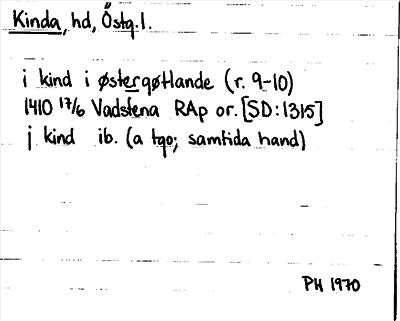 Kinda, hd, Östg.l.
i kind i østergøtlande (r. 9-10)
1410 17/6 Vadstena RAp or. [SD:1315]
j kind ib. (a tgo; samtida hand)
PH 1970